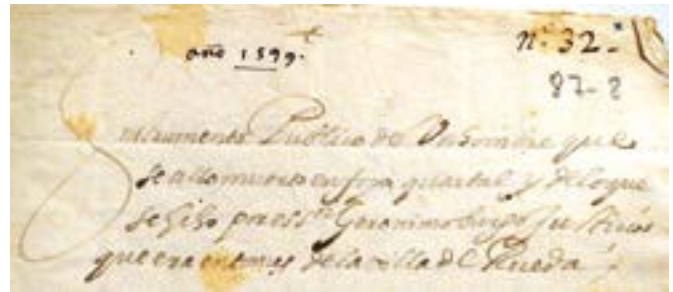 año 1599.
nº. 32.
87-2
Instrumento Publico de Un hombre que
se allo muerto en foja quartal y de loque
se hiso por ess.no Geronimo Justicia
que era entonces de la villa de Rueda